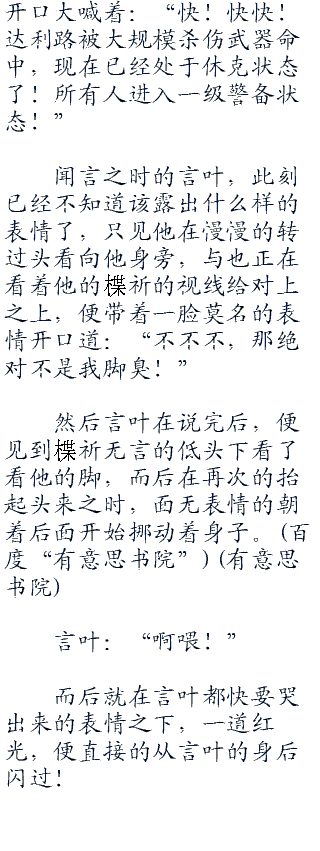 开口大喊着：“快！快快！
达利路被大规模杀伤武器命
中，现在已经处于休克状态
了！所有人进入一级警备状
态！”
闻言之时的言叶，此刻
已经不知道该露出什么样的
表情了，只见他在漫漫的转
过头看向他身旁，与也正在
看着他的楪祈的视线给对上
之上，便带着一脸莫名的表
情开口道：“不不不，那绝
对不是我脚臭！”
然后言叶在说完后，便
见到楪祈无言的低头下看了
看他的脚，而后在再次的抬
起头来之时，面无表情的朝
着后面开始挪动着身子。(百
度“有意思书院”)(有意思
书院)
言叶：“啊喂！”
而后就在言叶都快要哭
出来的表情之下，一道红
光，便直接的从言叶的身后
闪过！